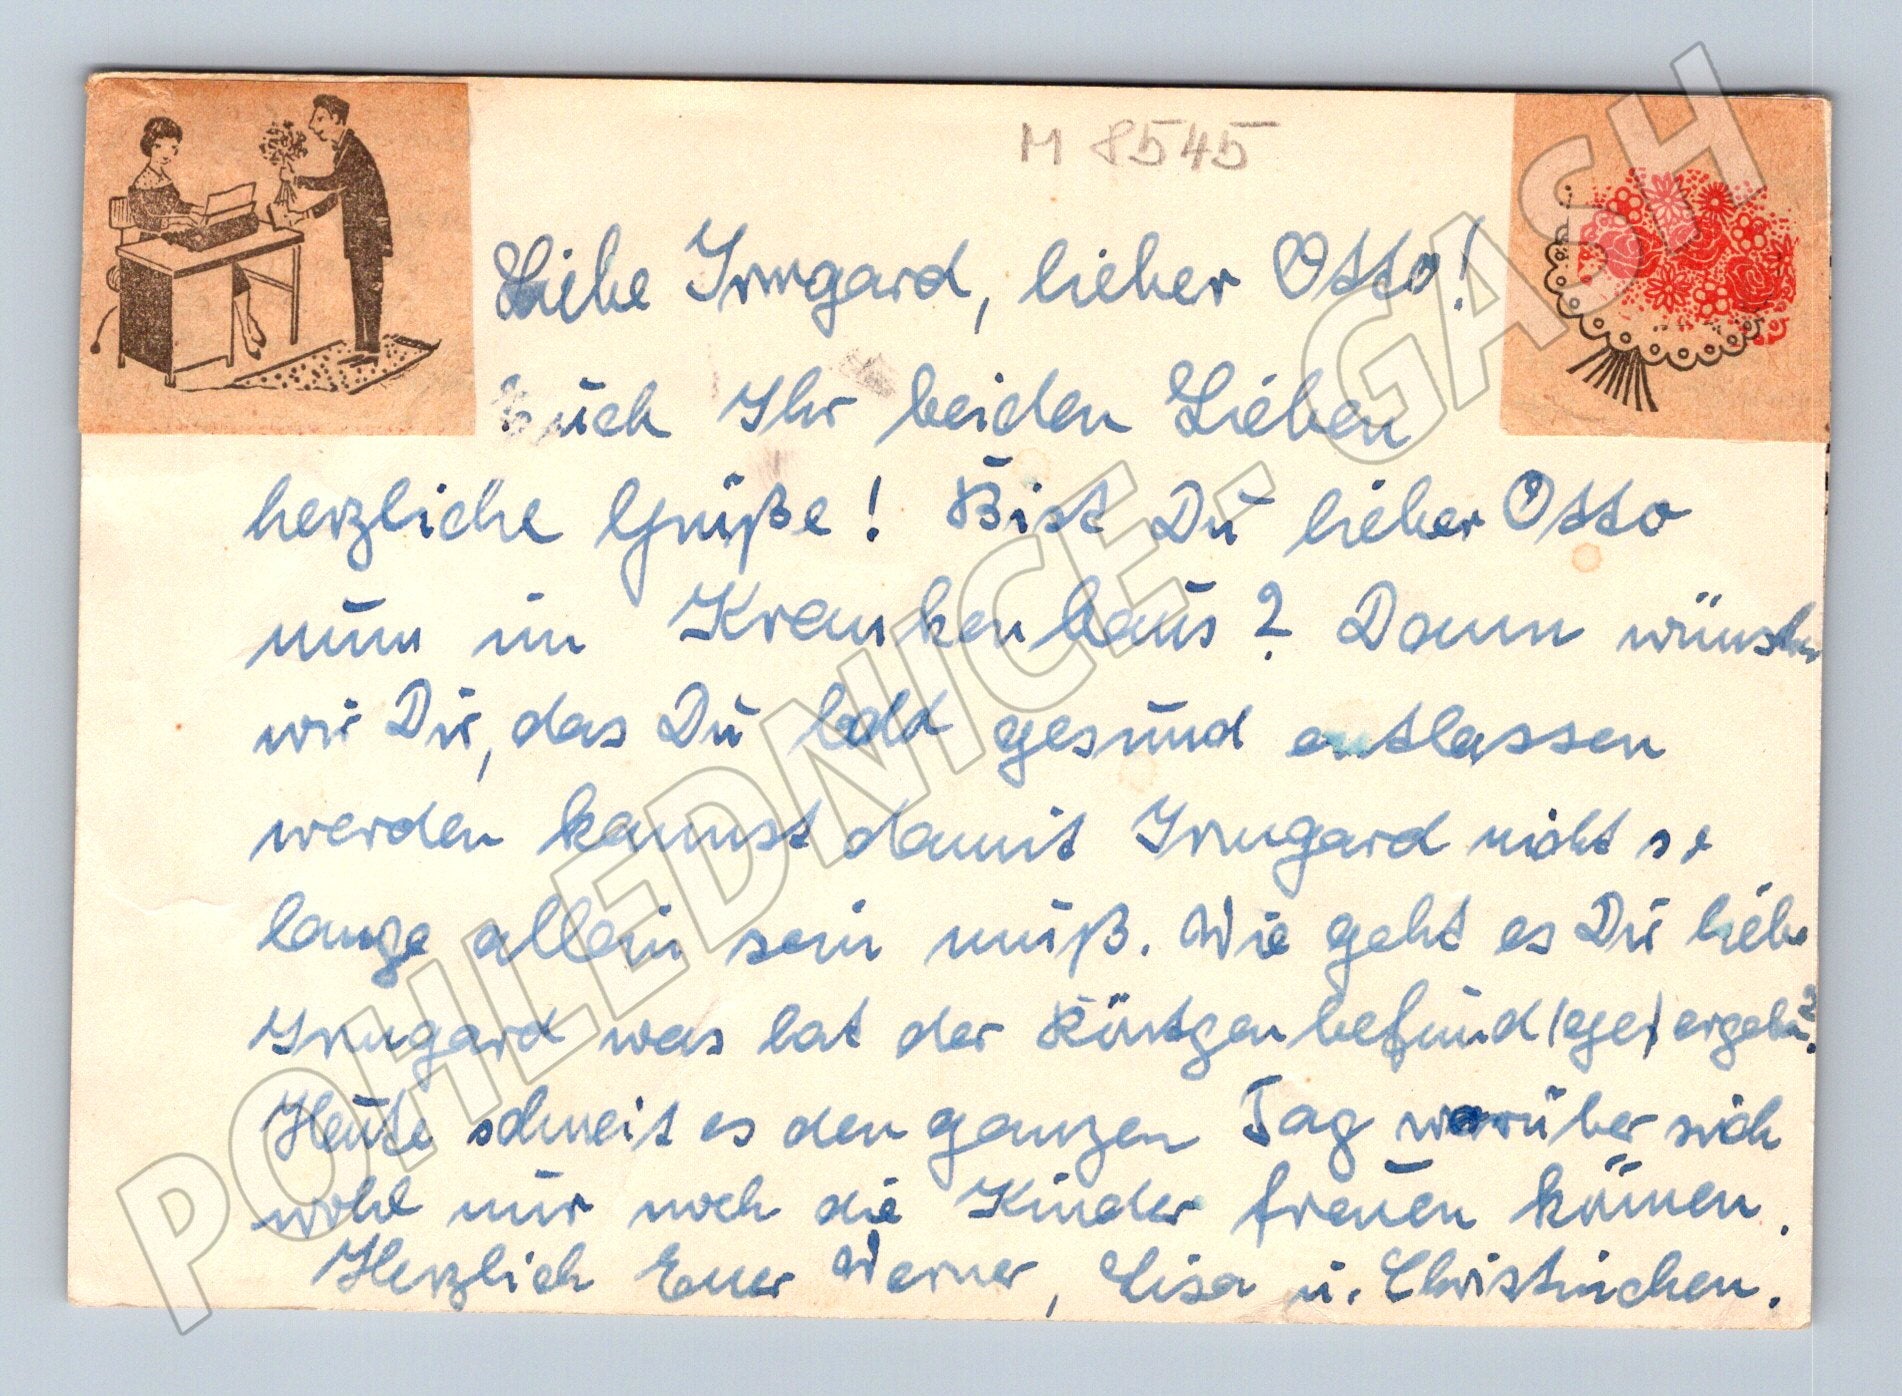 M 8545
Liebe Irmgard, lieber Otto!
Euch Ihr beiden Lieben
herzliche Grüße! Bist Du lieber Otto
nun im Krankenhaus? Dann wünschen
wir Dir, das Du bald gesund entlassen
werden kannst damit Irmgard nicht so
lange allein sein muß. Wie geht es Dir liebe
Irmgard was hat der Röntgenbefund (ge) ergeben?
Heute schneit es den ganzen Tag worüber sich
wohl nur noch die Kinder freuen können.
Herzlich Euer Werner, Lisa u. Christinchen.
POHLEDNICE - GASH